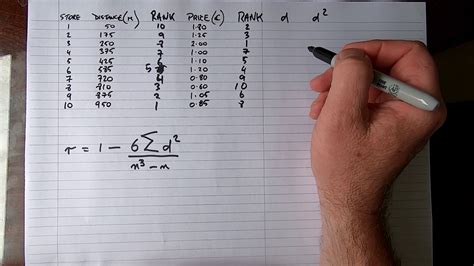 STORE DISTANCE(M) RANK PRICE(£) RANK d d²
1 50 10 1.80 2
2 175 9 1.25 3
3 250 8 2.00 1
4 375 7 1.00 7
5 425 6 1.10 5
6 585 5 1.20 4
7 720 4 0.80 9
8 810 3 0.60 10
9 875 2 1.05 6
10 950 1 0.85 8
r = 1 - 6 Σ d²
n³ - n